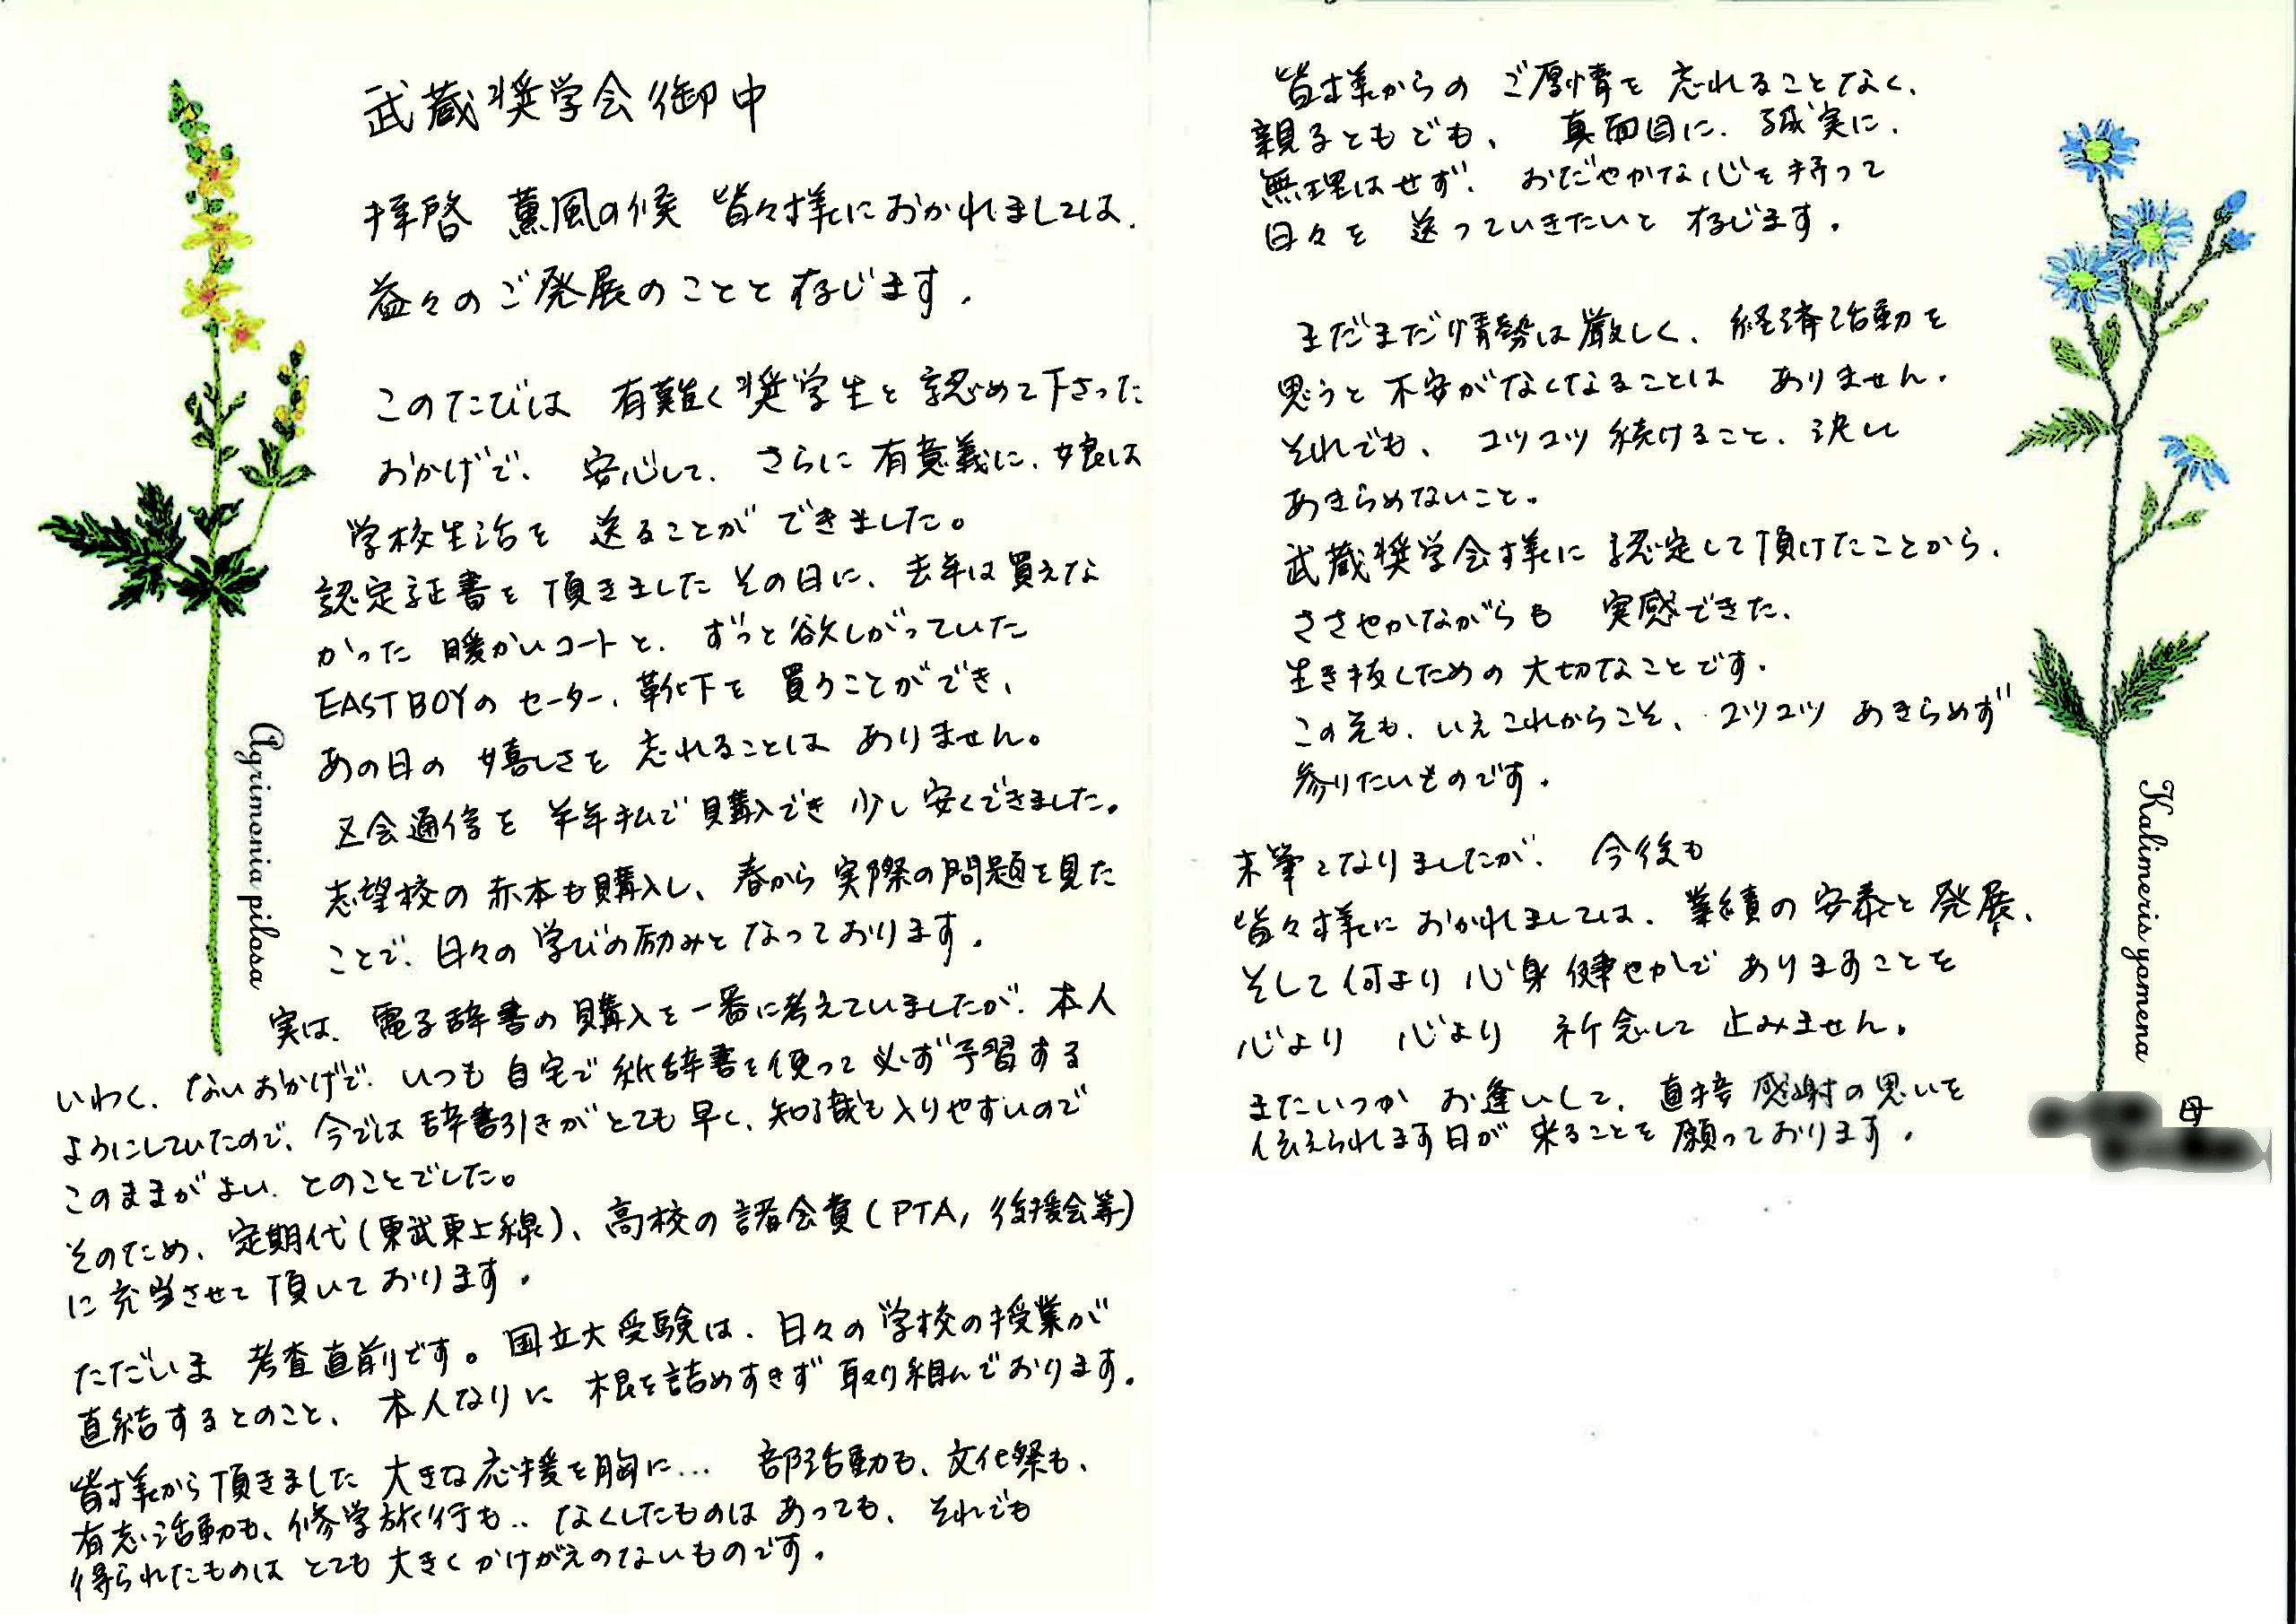 武蔵奨学会御中
拝啓 薫風の候 皆々様におかれましては、
益々のご発展のことと存じます。
このたびは 有難く奨学生と認めて下さった
おかげで、安心して、さらに有意義に、娘は
学校生活を 送ることが できました。
認定証書を 頂きました その日に、去年は買えな
かった 暖かいコートと、ずっと欲しがっていた
EASTBOYの セーター、靴下を 買うことができ、
あの日の 嬉しさを 忘れることは ありません。
Z会通信を 半年払で購入でき 少し安くできました。
志望校の 赤本も購入し、春から 実際の問題を見た
ことで、日々の 学びの励みと なっております。
実は、電子辞書の 購入を 一番に考えていましたが、本人
いわく、ないおかげで、いつも 自宅で 紙辞書を使って 必ず予習する
ようにしていたので、今では 辞書引きが とても 早く、知識も入りやすいので
このままがよい、とのことでした。
そのため、定期代(東武東上線)、高校の 諸会費(PTA, 後援会等)
に充当させて 頂いて おります。
ただいま 考査直前です。国立大受験は、日々の 学校の授業が
直結するとのこと、本人なりに 根を詰めすぎず 取り組んでおります。
皆様から頂きました 大きな応援を胸に… 部活動も、文化祭も、
有志活動も、修学旅行も‥ なくしたものは あっても、それでも
得られたものは とても 大きく かけがえのないものです。
Agrimonia pilosa
皆様からの ご厚情を 忘れることなく、
親子ともども、真面目に、誠実に、
無理はせず、おだやかな心を持って
日々を 送っていきたいと 存じます。
まだまだ情勢は厳しく、経済活動を
思うと 不安がなくなることは ありません。
それでも、コツコツ続けること、決して
あきらめないこと。
武蔵奨学会様に 認定して頂けたことから、
ささやかながらも 実感できた、
生き抜くための大切なことです。
この先も、いえこれからこそ、コツコツ あきらめず
参りたいものです。
末筆となりましたが、今後も
皆々様に おかれましては、業績の 安泰と 発展、
そして何より 心身 健やかで ありますことを
心より 心より 祈念して 止みません。
またいつか お逢いして、直接 感謝の思いを
伝えられます日が 来ることを 願っております。
母
Kalimeris yomena